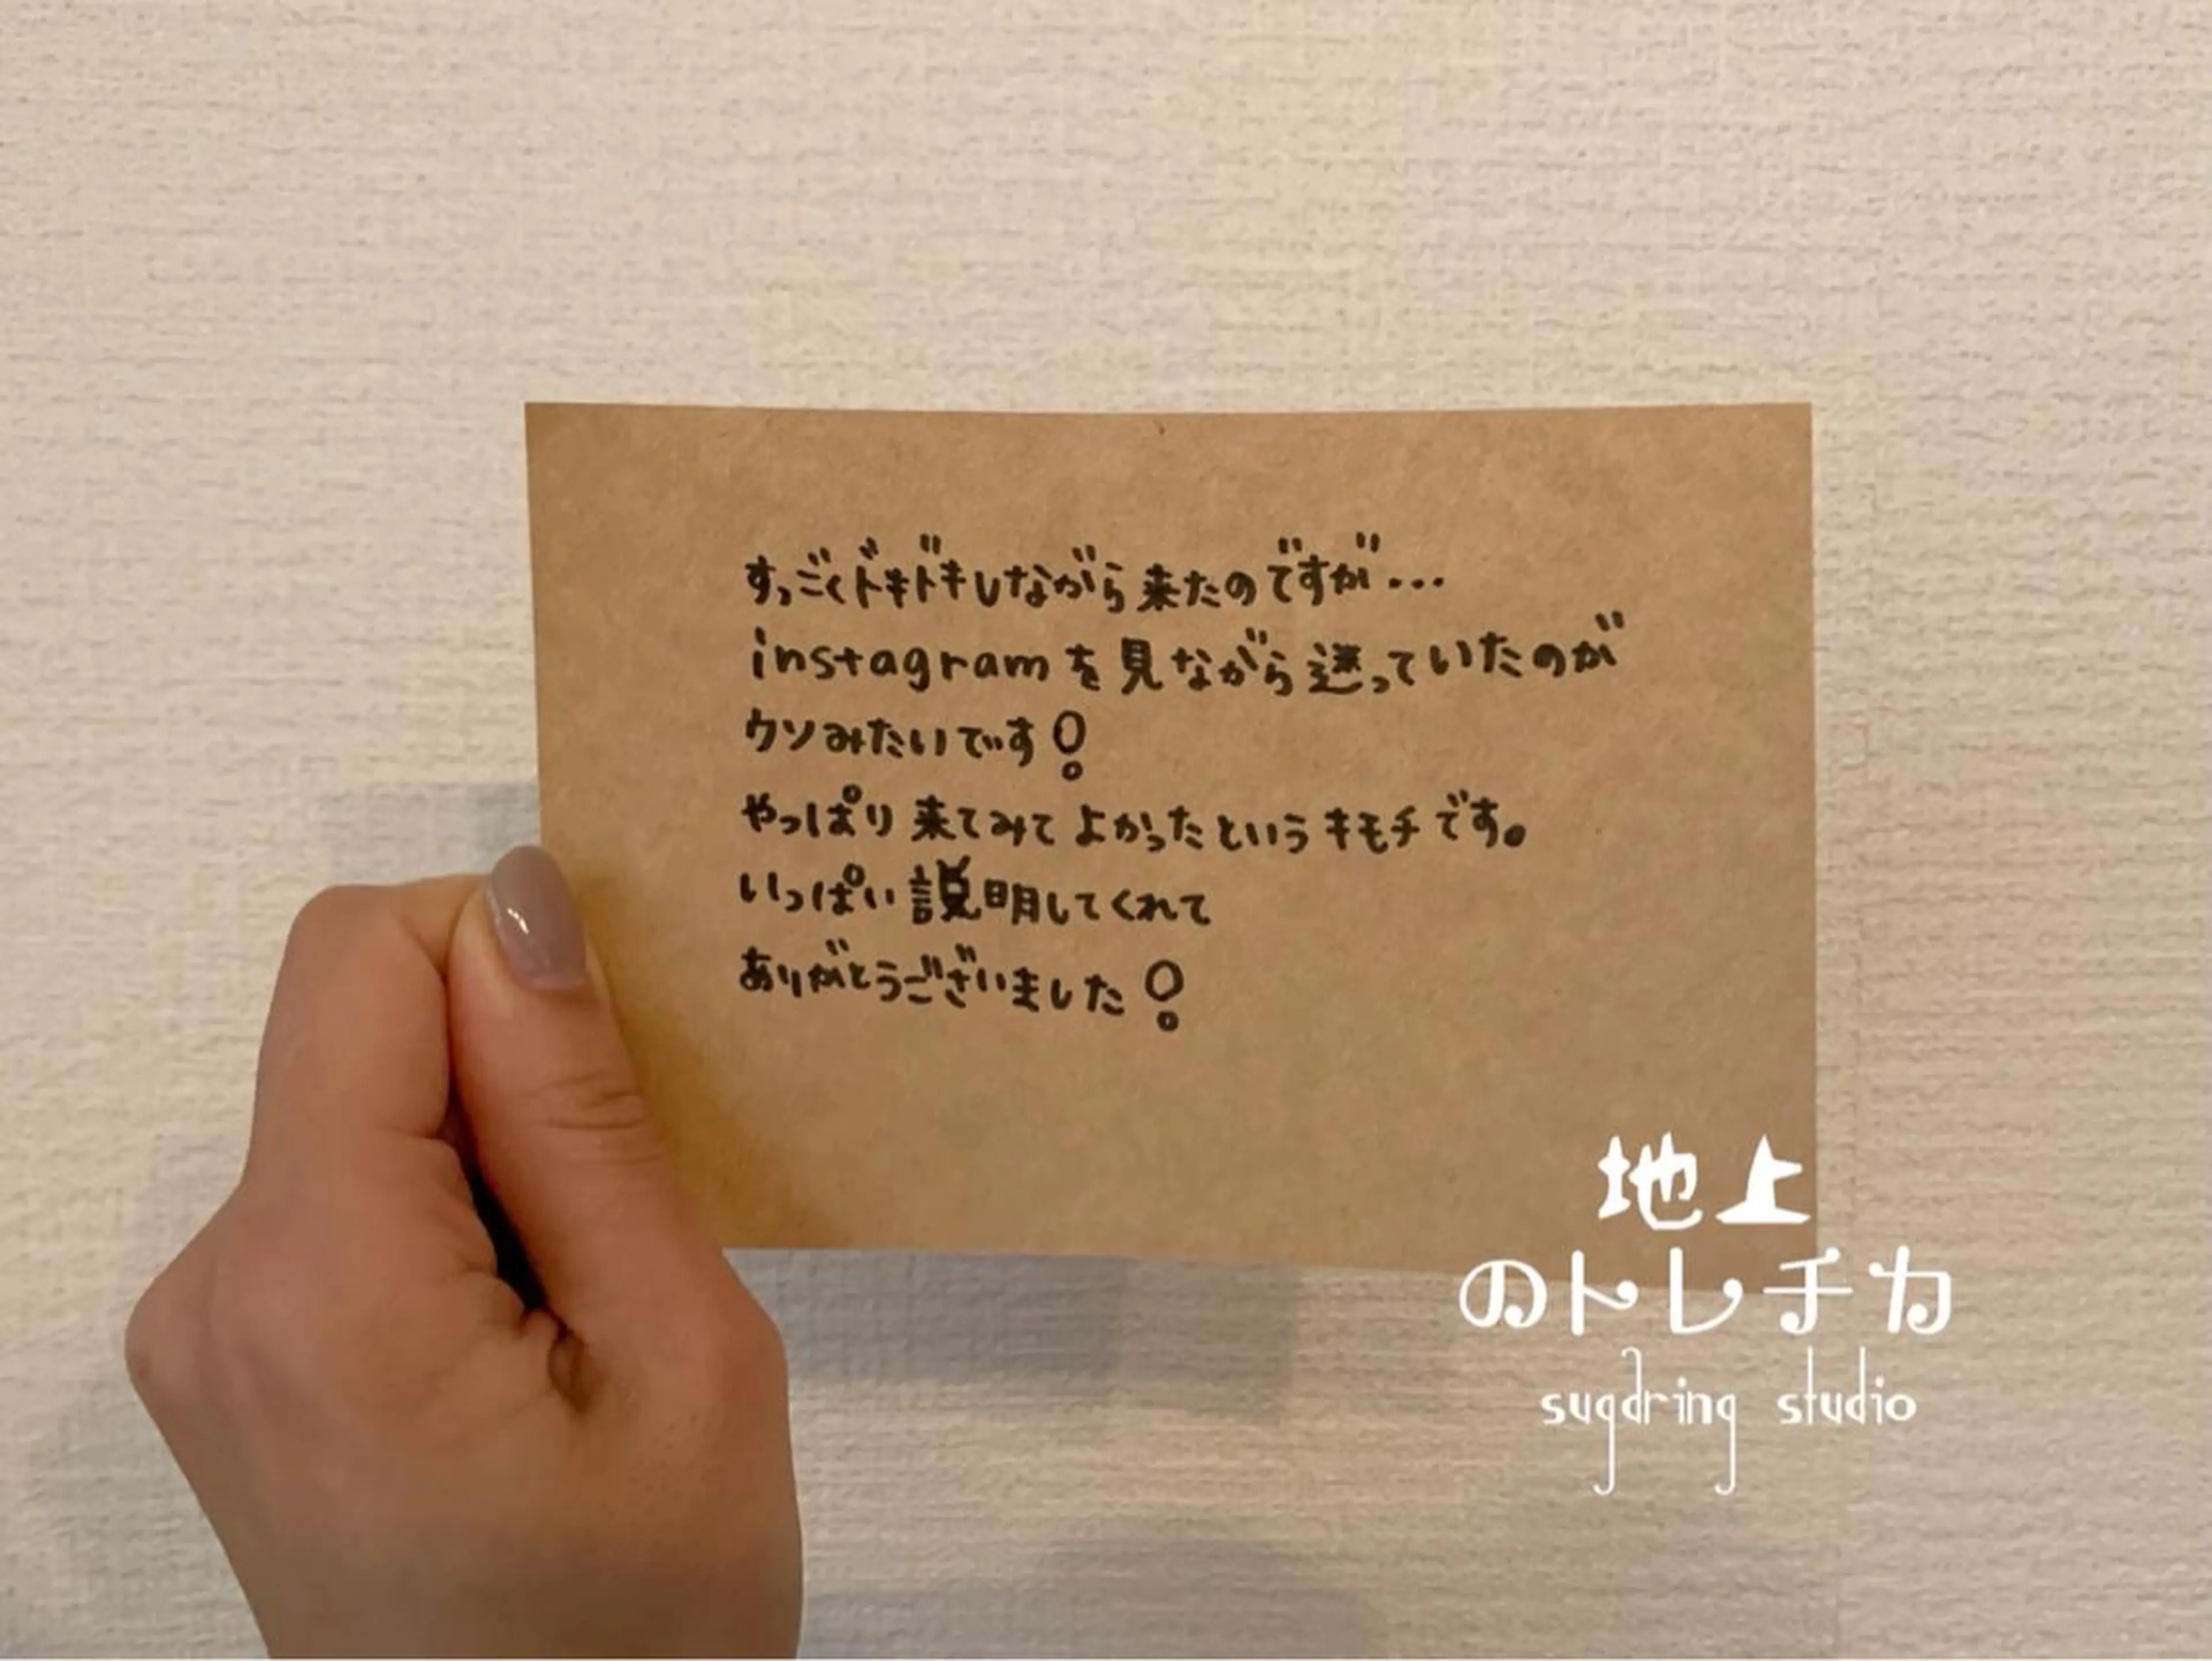 すっごくドキドキしながら来たのですが...
instagramを見ながら迷っていたのが
ウソみたいです!
やっぱり来てみてよかったというキモチです。
いっぱい説明してくれて
ありがとうございました!
地上
のトレチカ
sugdring studio